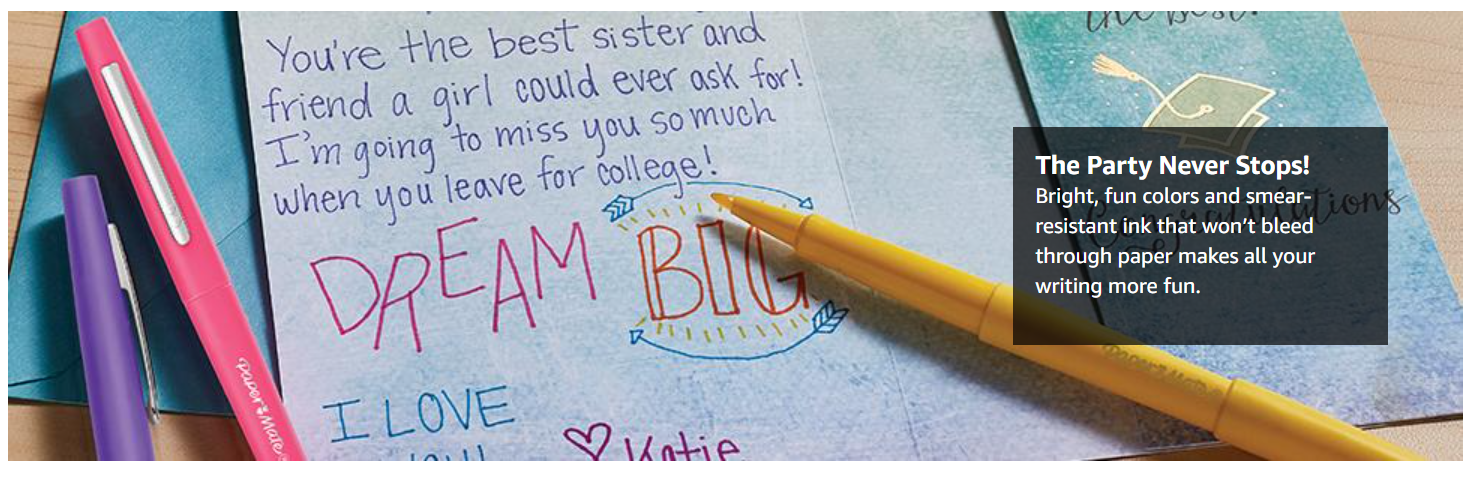 You're the best sister and
friend a girl could ever ask for!
I'm going to miss you so much
when you leave for college!
DREAM BIG
I LOVE
you!
♡ Katie
Paper Mate
the best!
Congratulations
The Party Never Stops!
Bright, fun colors and smear-
resistant ink that won't bleed
through paper makes all your
writing more fun.
Paper Mate